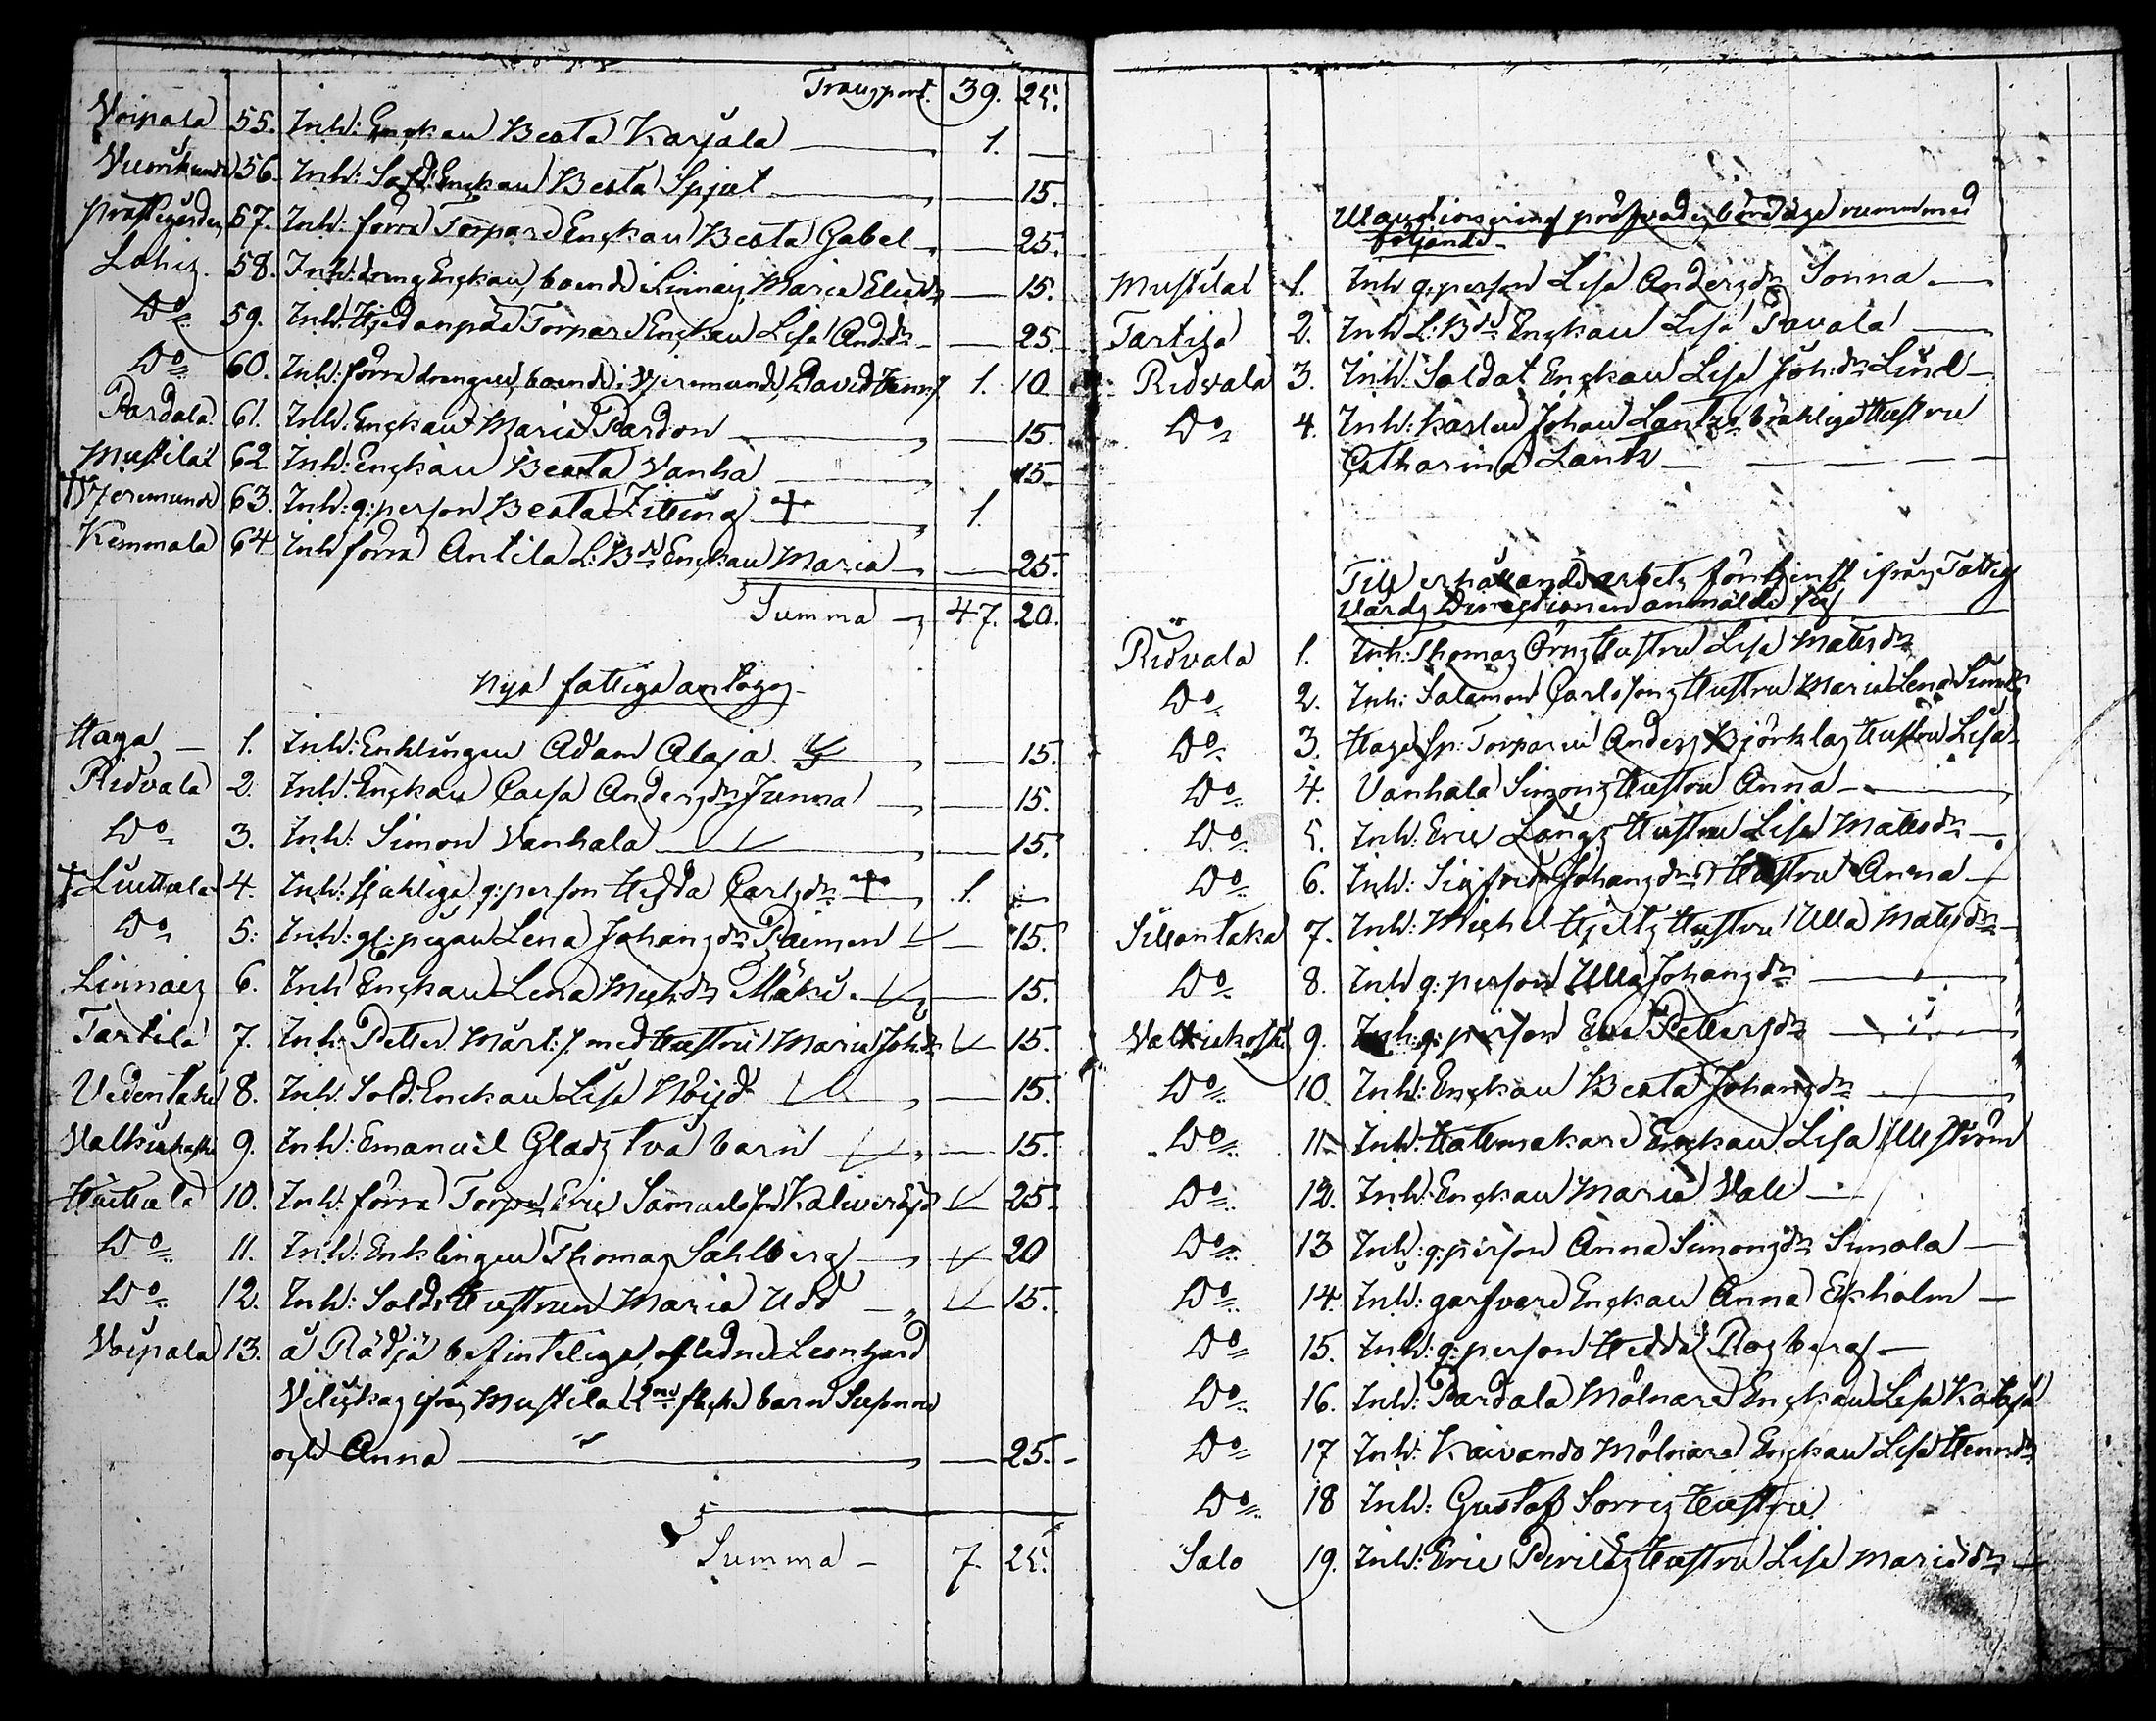 Transport. 39. 25.
Voipala 55. Inh: Enckan Beata Karjala 1. —
56. Inh: Sold: Enckan Beata Spjut — 15.
Prästegården 57. Inh: förra Torpare Enckan Beata Gabel — 25.
Lahis 58. Inh: dreng Enckan, boende i Linnais, Maria Eliædr — 15.
Do 59. Inh: Torpare Enckan Lisa And:dr — 25.
Do 60. Inh: förra drengen, boende i Tjerimunde, David 1. 10
Pardala 61. Inh: Enckan Maria Pardon — 15.
Mustila 62 Inh: Enckan Beata Vanha — 15.
† Tjerimunde 63. Inh: q:person Beata Zitting † 1.
Kemmala 64 Inh förra Antila L:Bds Enckan Maria — 25.
Summa — 47. 20.
Nya fattiga antogos
Haga — 1. Inh: Enklingen Adam Alaja — 15.
Ridvala 2. Inh: Enckan Caisa Andersdr Junna — 15.
Do 3. Inh: Simon Vanhala — 15.
† Liuttala 4. Inh: sjukliga q:person Hedda Carlsdr † 1. —
Do 5: Inh: gl: pigan Lena Johansdr Paimen — 15.
Linnais 6. Inh Enckan Lena Mich:dr Mäki — 15.
Tarttila 7. Inh: Petter Mårt:s. med Hustru Maria Joh:dr — 15.
Uedentaka 8. Inh. Sold: Enckan Lisa Nöijd — 15.
Valkiakoski 9. Inh: Emanuel Glads två barn — 15.
Huttula 10. Inh: förra Torp: Eric Samuelsson — 25.
Do 11. Inh: Enklingen Thomas Sahlberg — 20
Do 12. Inh: Sold: Hustrun Maria Udd — 15.
Voipala 13. å Rädjä befinteliga, afledne Leonhard
ifrån Mustila 2ne barn Susanna
och Anna — 25.
Summa — 7. 25.
Utauctionering på bör äga rum med
följande
Mustila 1. Inh q:person Lisa Andersdr Sonna —
Tartila 2. Inh L:Bds Enckan Lisa Pavola —
Ridvala 3. Inh: Soldat Enckan Lisa Joh:dr Lind —
Do 4. Inh: Karlen Johan Lantz bräkliga Hustru
Catharina Lantz —
Till erhållande arbets förtjenst ifrån Fattig
vårds Directionen anmälde sig
Ridvala 1. Inh: Thomas Örns Hustru Lisa Matsdr
Do 2. Inh: Salamon Carlssons Hustru Maria Lena
Do 3. Haga Sp: Torparen Anders Björklas Hustru Lisa
Do 4. Vanhala Simons Hustru Anna —
Do 5. Inh: Eric Långs Hustru Lisa Matsdr —
Do 6. Inh: Sigfrid Hustru Anna —
Sillantaka 7. Inh: Michel Hjelts Hustru Ulla Matsdr —
Do 8. Inh q:person Ulla Johansdr —
Valkiakoski 9. Inh: q:person Eva Pettersdr —
Do 10. Inh: Enckan Beata Johansdr —
Do 11. Inh: Hattmakare Enckan Lisa Ullström
Do 12. Inh: Enckan Maria Vall —
Do 13 Inh: q:person Anna Simonsdr Simola —
Do 14. Inh: garfvare Enckan Anna Ekholm —
Do 15. Inh: q:person Hedda Rosberg —
Do 16. Inh: Pardala Mölnare Enckan Lisa Kataja
Do 17 Inh: Kaivando Mölnare Enckan Lisa Henr:dr
Do 18 Inh: Gustaf Sorris Hustru
Salo 19. Inh: Eric Perilās Hustru Lisa